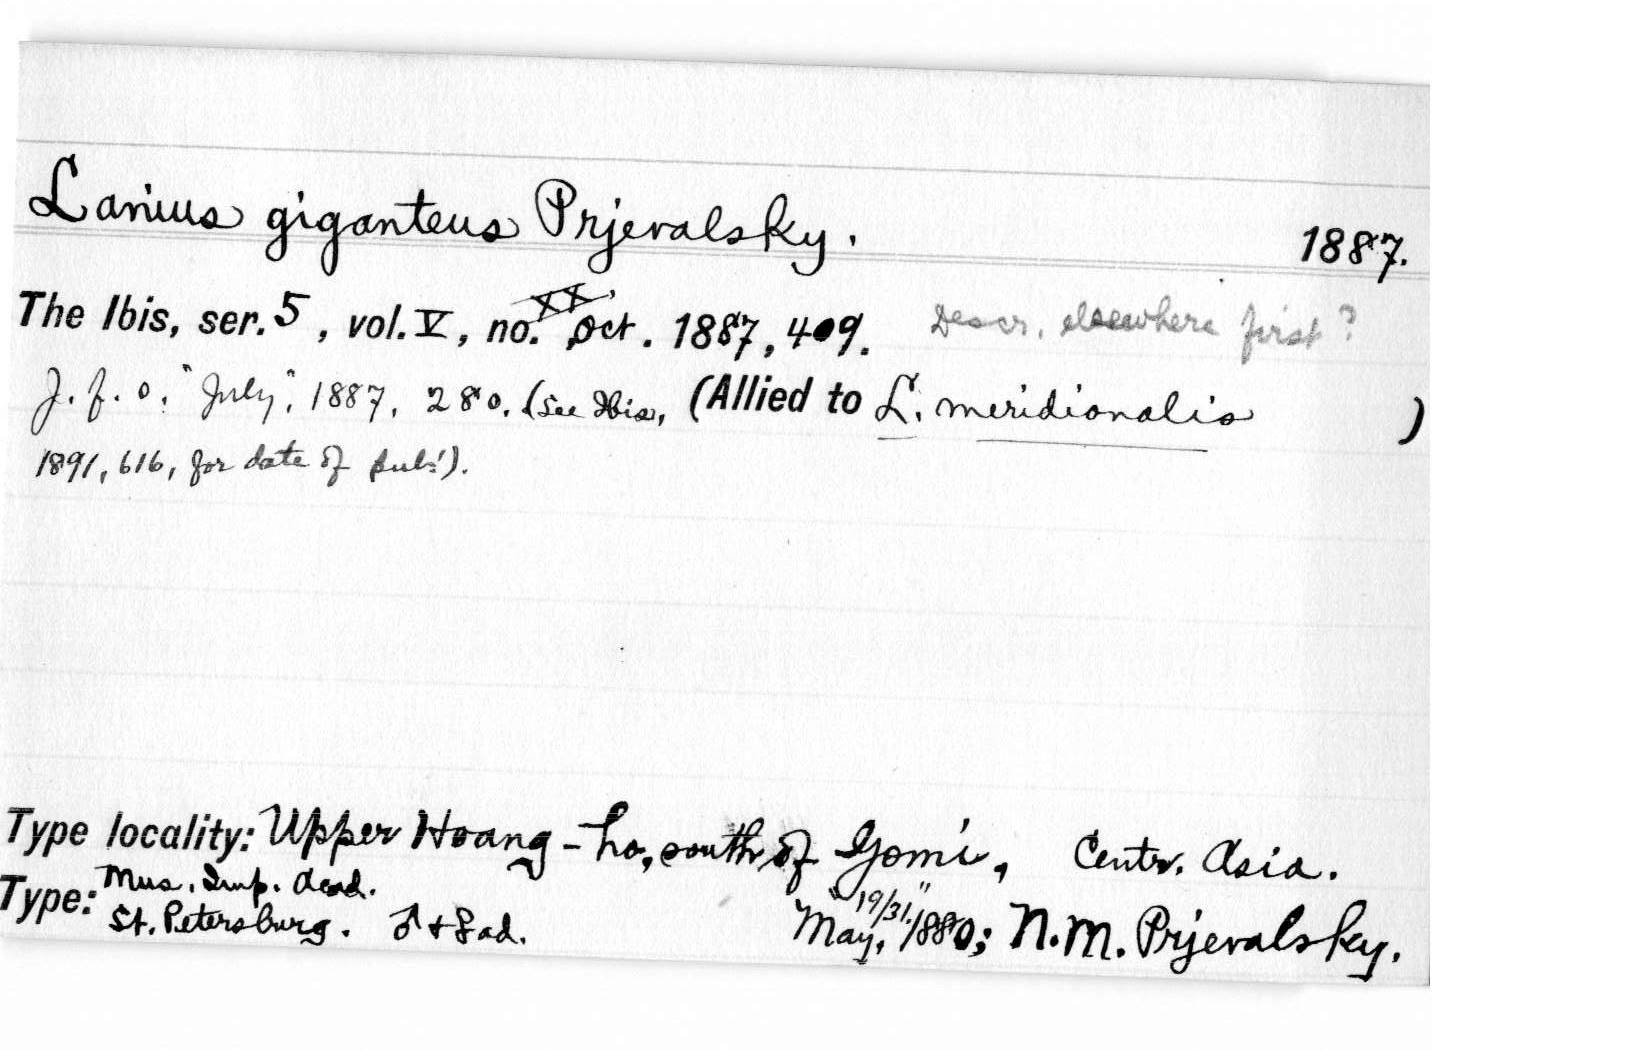 Lanius giganteus Prjevalsky. 1887.
The Ibis, ser. 5, vol. V, no. XX, Oct. 1887, 409. Descr. elsewhere first?
J. f. O. "July", 1887, 280. (See Ibis, (Allied to L. meridionalis )
1891, 616, for date of pub!).
Type locality: Upper Hoang-ho, south of Gomi, Centr. Asia.
Type: Mus. Imp. Acad. St. Petersburg. ♂ + ♀ ad. May, "19/31" 1880; N. M. Prjevalsky.